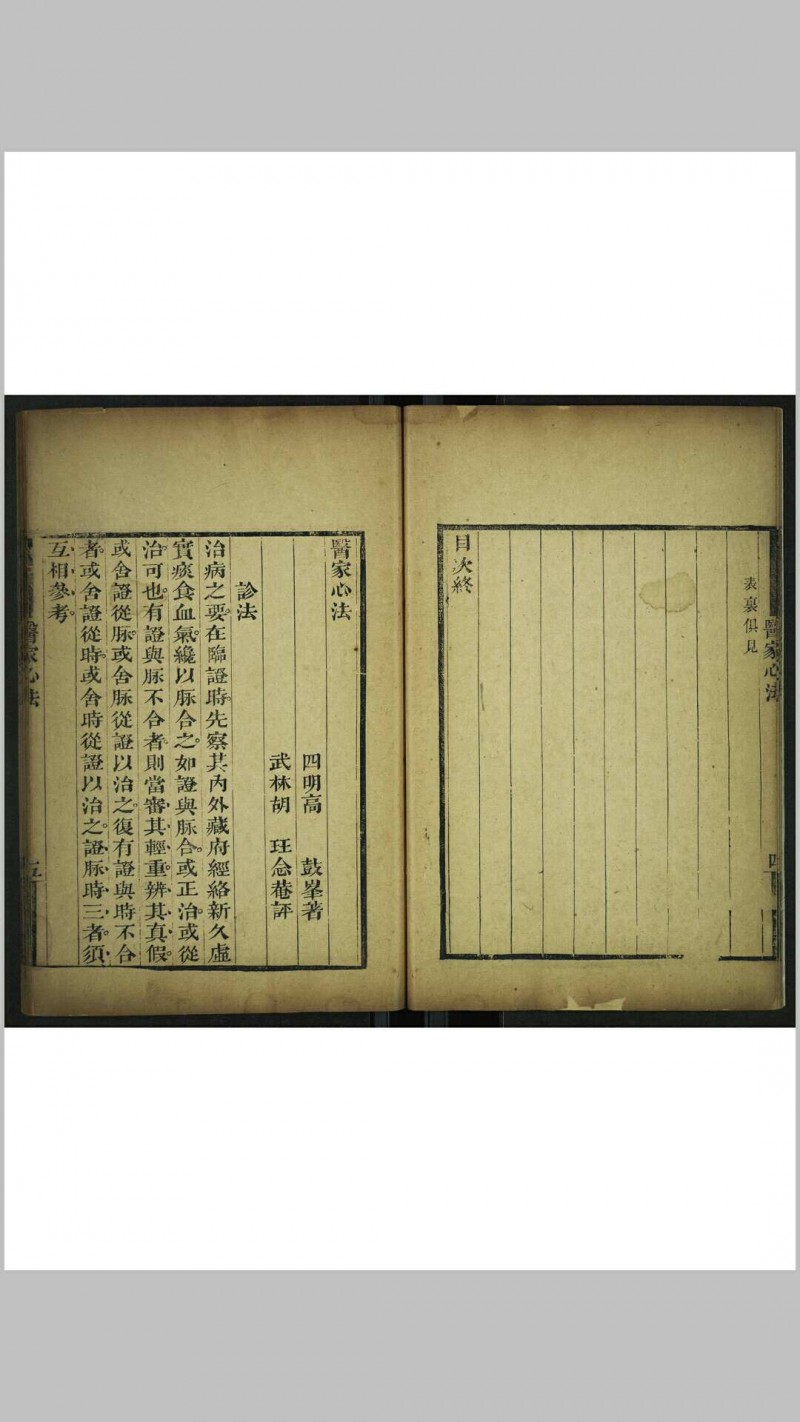 表裏俱見
醫家心法
四
目次終
醫家心法
四明高 鼓峯著
武林胡 玨念菴評
診法
治病之要。在臨證時先察其內外藏府經絡新久虛
實痰食血氣。纔以脈合之。如證與脈合。或正治。或從
治。可也。有證與脈不合者。則當審其輕重。辨其真假。
或舍證從脈。或舍脈從證以治之。復有證與時不合
者。或舍證從時。或舍時從證以治之。證脈時三者。須
互相參考。
醫家心法
五